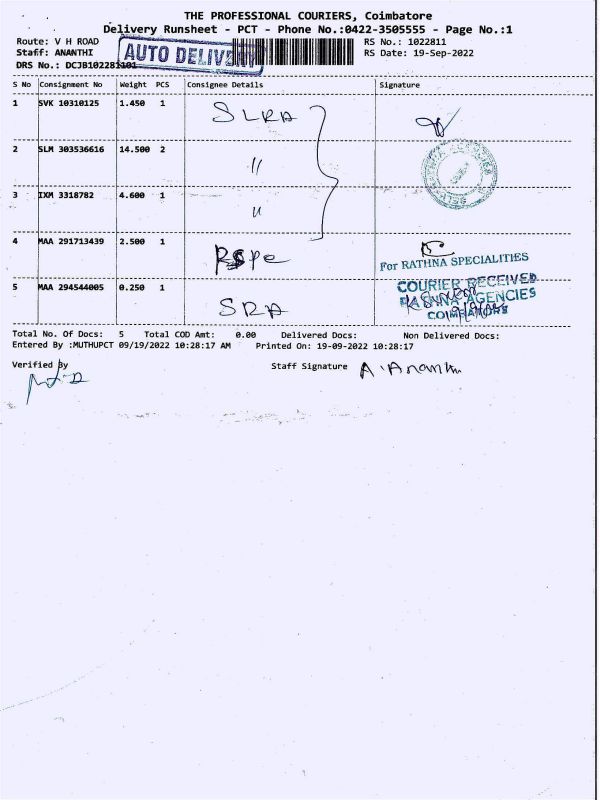 THE PROFESSIONAL COURIERS, Coimbatore
Delivery Runsheet - PCT - Phone No.:0422-3505555 - Page No.:1
Route: V H ROAD
RS No.: 1022811
Staff: ANANTHI
RS Date: 19-Sep-2022
DRS No.: DCJB102281101
AUTO DELIVERY
S No Consignment No Weight PCS Consignee Details Signature
1 SVK 10310125 1.450 1 SLRA
2 SLM 303536616 14.500 2 "
3 IXM 3318782 4.600 1 "
4 MAA 291713439 2.500 1
For RATHNA SPECIALITIES
5 MAA 294544005 0.250 1 SRA
COURIER RECEIVED
RATHNA AGENCIES
COIMBATORE
Total No. Of Docs: 5 Total COD Amt: 0.00 Delivered Docs: Non Delivered Docs:
Entered By :MUTHUPCT 09/19/2022 10:28:17 AM Printed On: 19-09-2022 10:28:17
Verified By
Staff Signature A. Ananthi